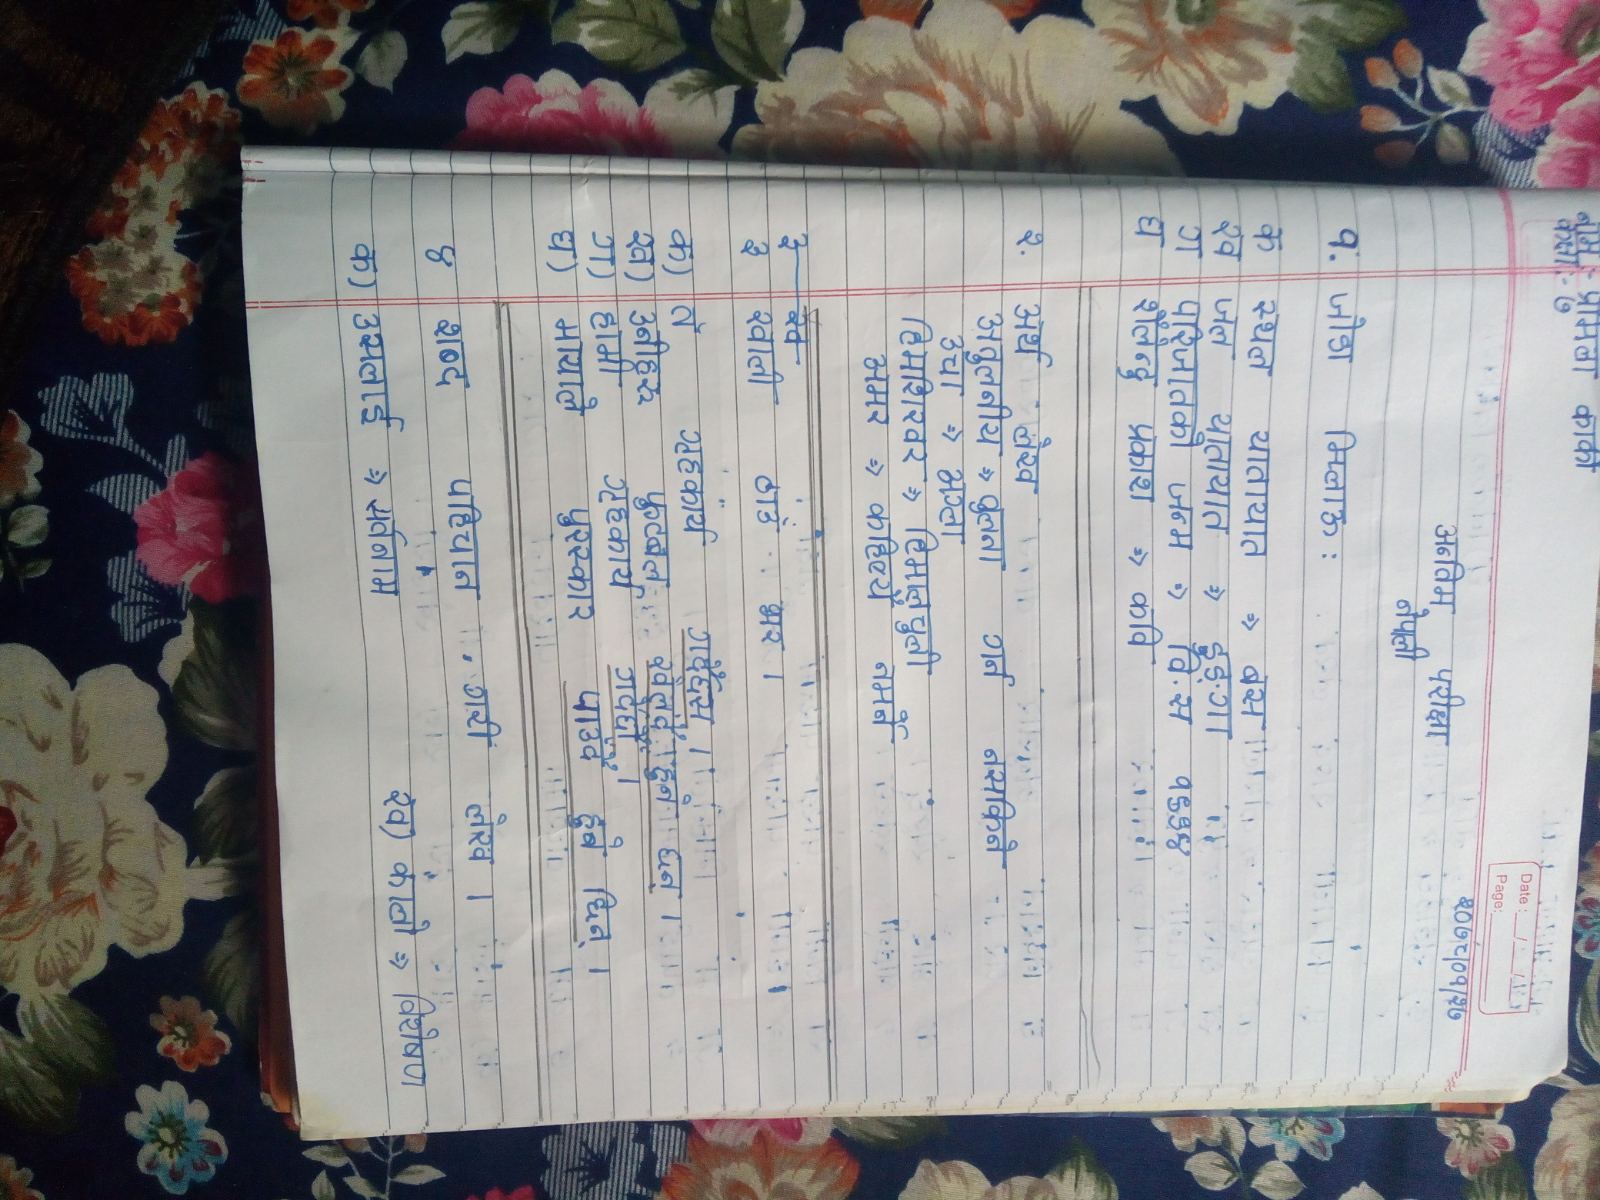 नाम : प्रामिवा कार्की
कक्षा:- ७
Date : / /
Page:
अन्तिम परीक्षा २०७८/०१/२७
नेपाली
१. जोडा मिलाऊ :
क स्थल यातायात ⇒ बस
ख जल यातायात ⇒ डुङ्गा
ग परिमातको जन्म ⇒ वि.स १९७४
घ शैलेन्दु प्रकाश ⇒ कवि
२. अर्थ लेख
अतुलनीय ⇒ तुलना गर्न नसकिने
उचा ⇒ अग्ला
हिमशिखर ⇒ हिमालचुली
अमर ⇒ कहिल्यै नमर्ने
३ ख
३ खाली ठाउँ भर ।
क) ले सहकार्य गर्दैछस् ।
ख) उनीहरू फुटबल खेल्दै हुने छन् ।
ग) हामी सहकार्य गर्दछौँ ।
घ) भायाले पुरस्कार पाउदै हुने छिन् ।
४ शब्द पहिचान गरी लेख ।
क) उसलाई ⇒ सर्वनाम ख) कालो ⇒ विशेषण